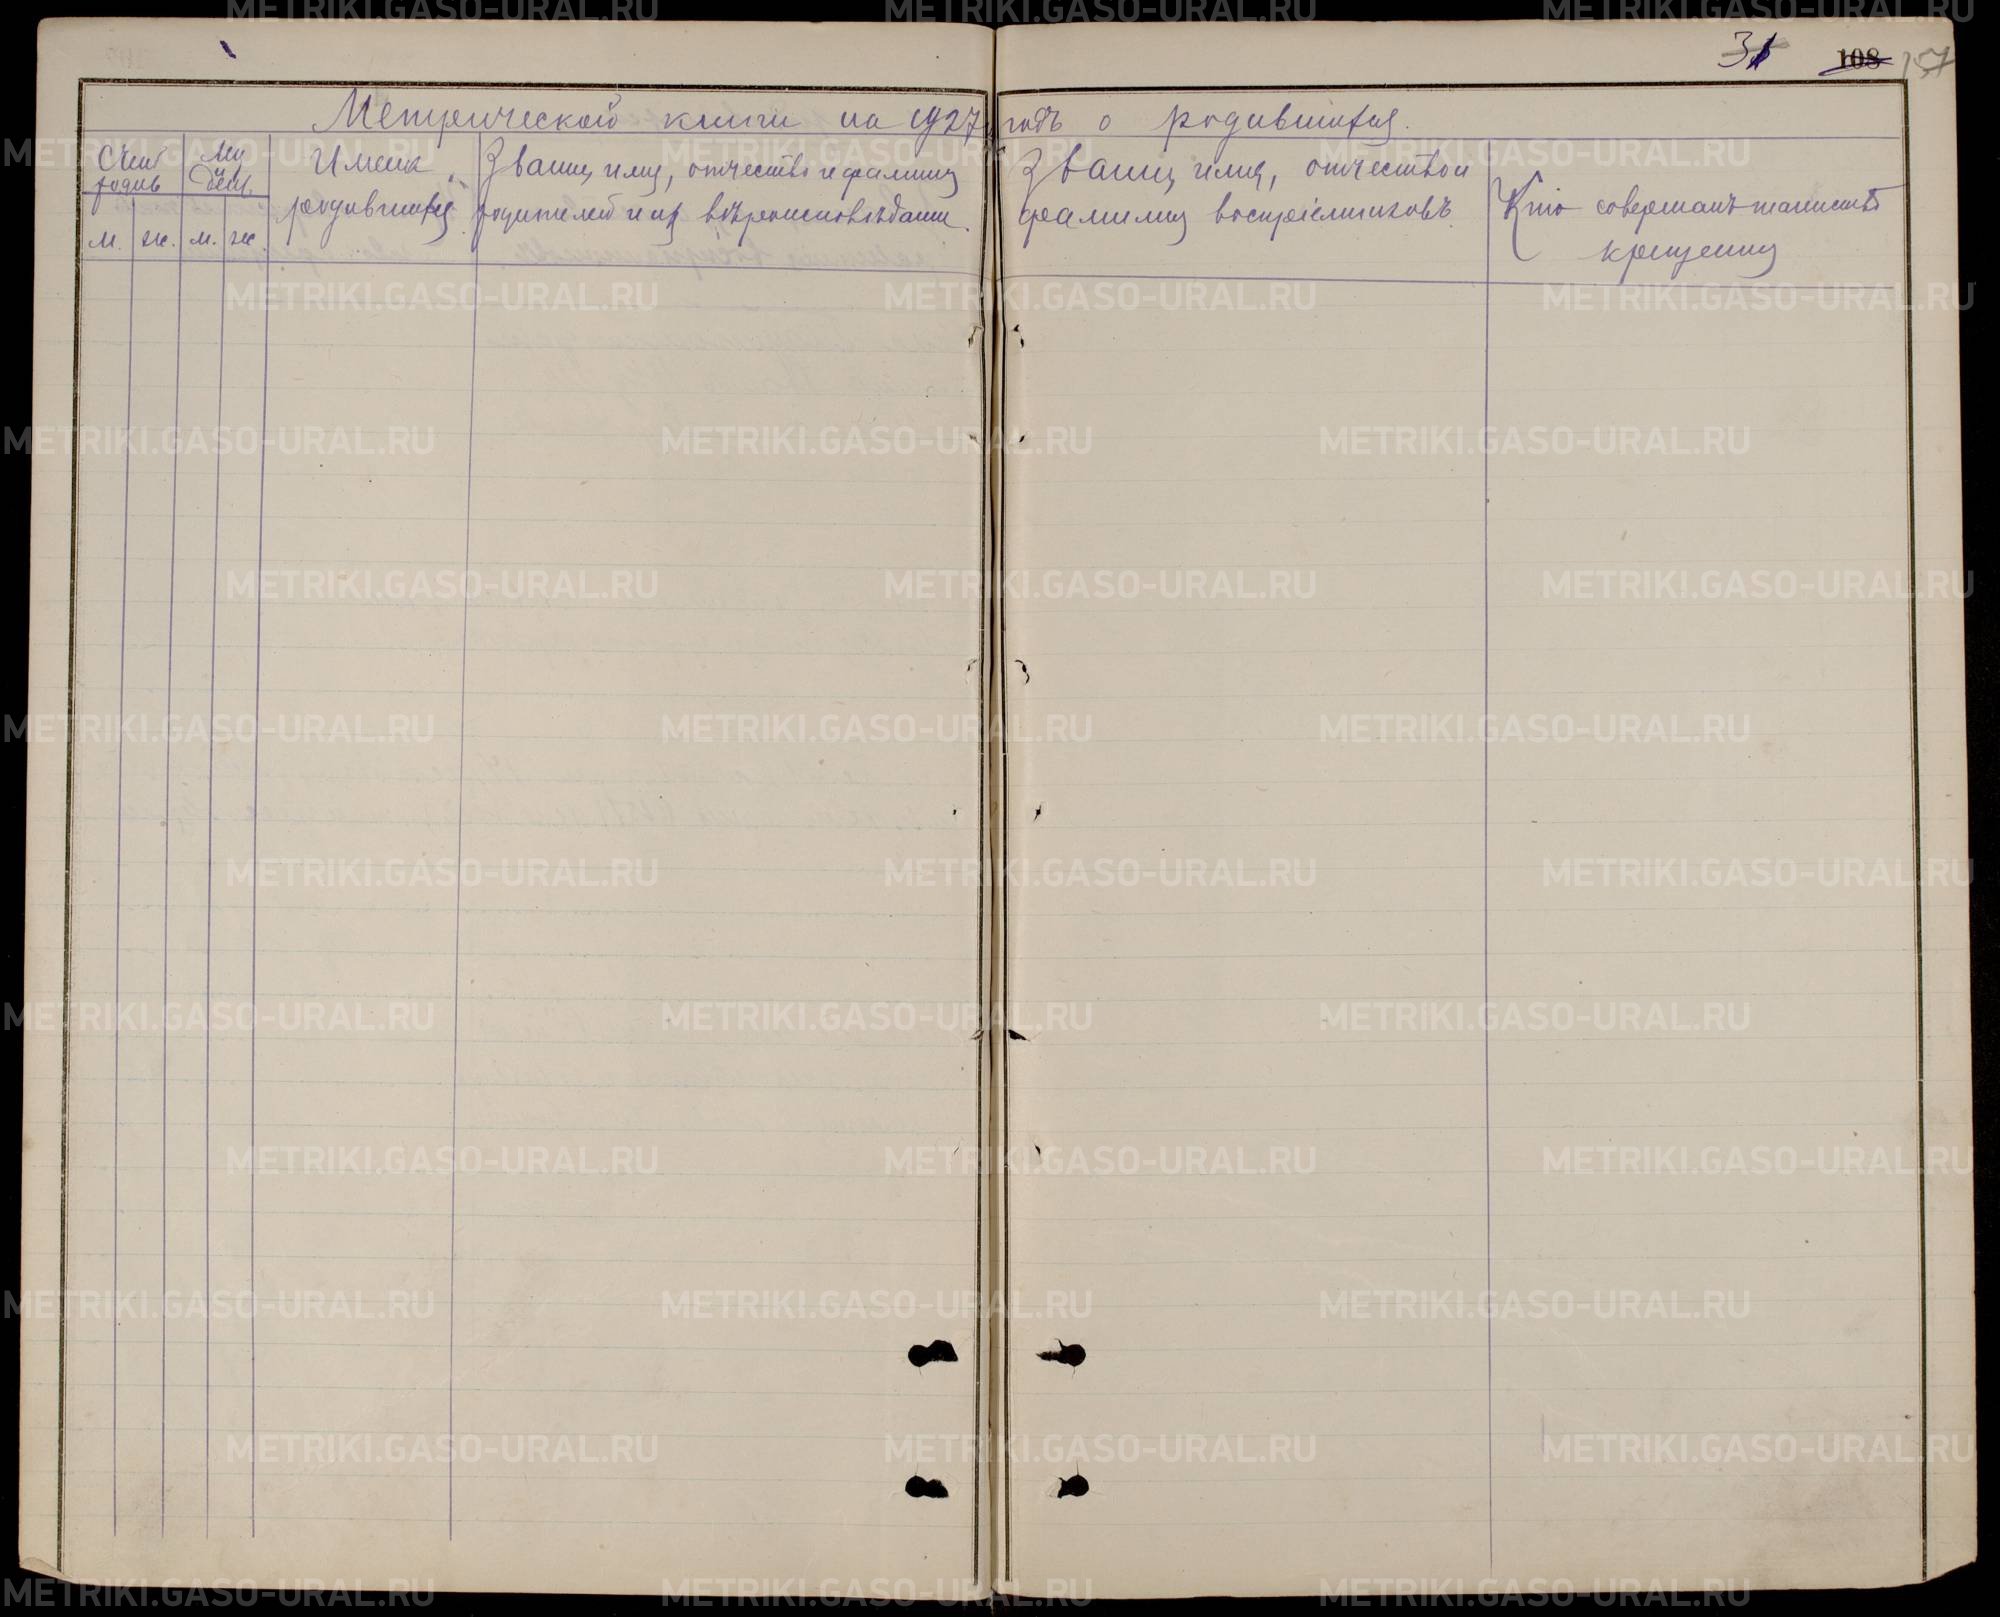 31 108 157
Метрической книги на 1927 годъ о родившихся.
Счет родив
Мц день.
м. ж. м. ж.
Имена родившихся
Званіе, имя, отчество и фамилия
родителей и их вѣроисповѣдание.
Званіе, имя, отчество и
фамилия воспріемниковъ.
Кто совершалъ таинство
крещения
METRIKI.GASO-URAL.RU